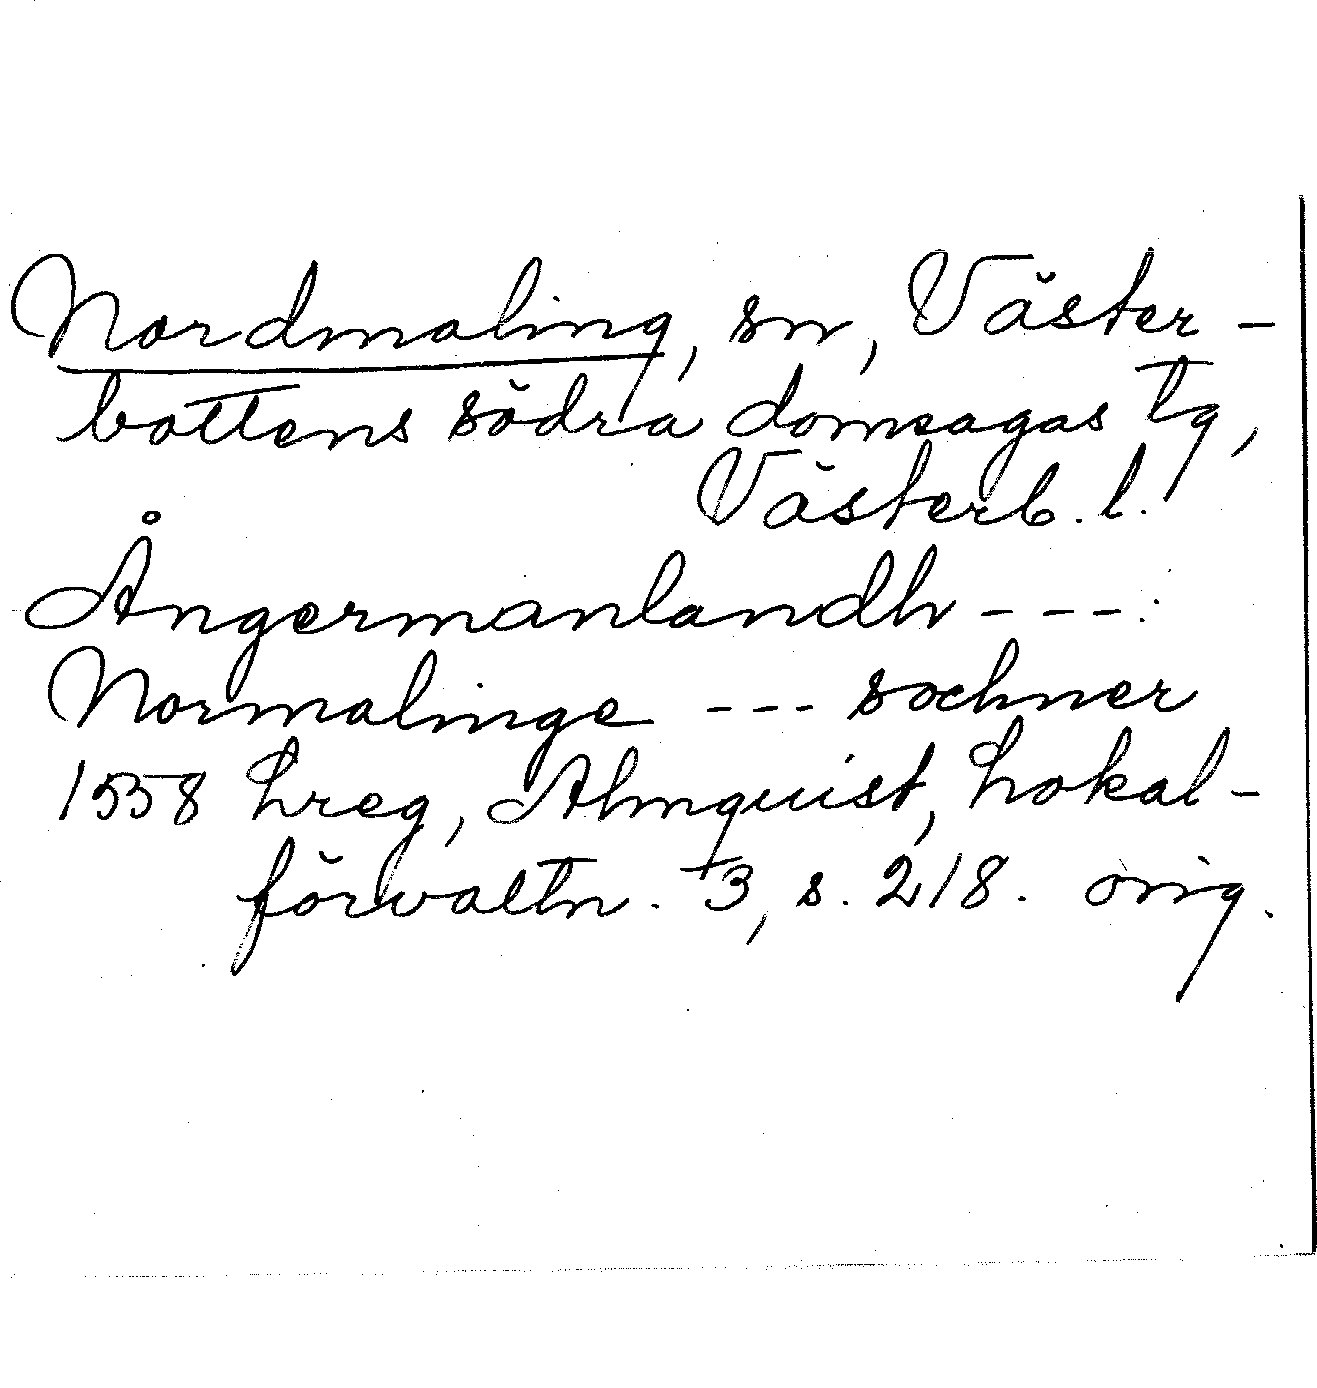 Nordmaling, sn, Väster-
bottens södra domsagas tg,
Västerb. l.
Ångermanlandh ---:
Normalinge --- sochner
1558 Lreg, Almquist, Lokal-
förvaltn. 3, s. 218. orig.